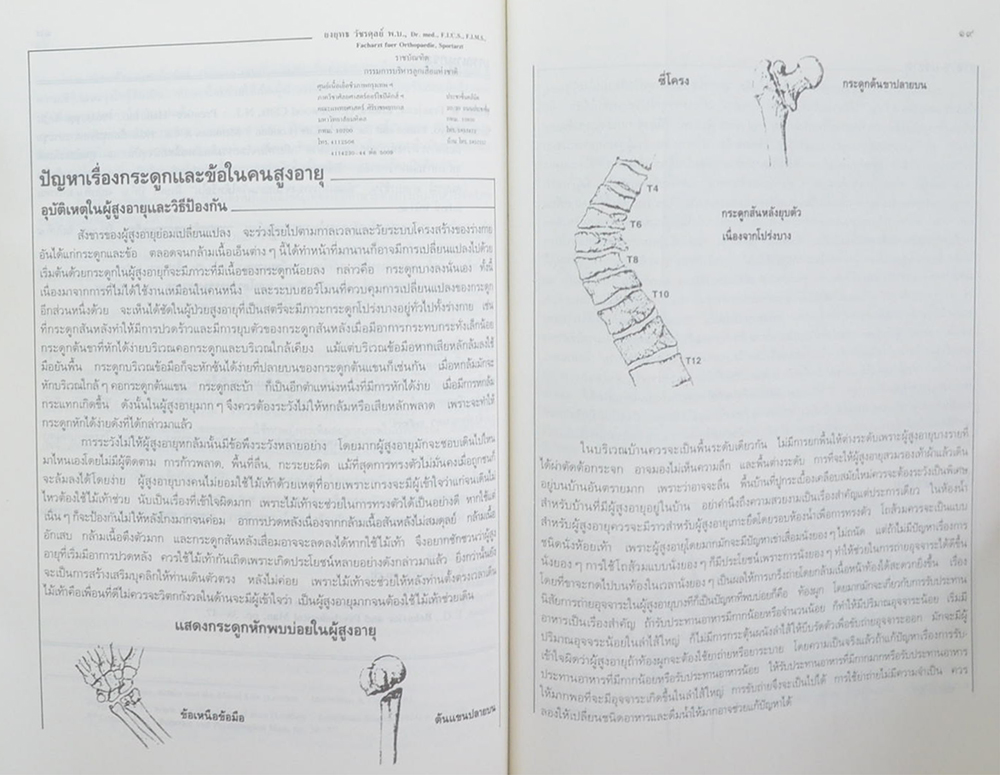 ยงยุทธ วัชรดุลย์ พ.บ., Dr. med., F.I.C.S., F.I.M.S.,
Facharzt fuer Orthopaedie, Sportarzt
ราชบัณฑิต
กรรมการบริหารลูกเสือแห่งชาติ
ศูนย์เนื้อเยื่อชีวภาพกรุงเทพ ฯ
ภาควิชาศัลยศาสตร์ออร์โธปิดิคส์ ฯ
คณะแพทยศาสตร์ ศิริราชพยาบาล
มหาวิทยาลัยมหิดล
ปัญหาเรื่องกระดูกและข้อในคนสูงอายุ
อุบัติเหตุในผู้สูงอายุและวิธีป้องกัน
สังขารของผู้สูงอายุย่อมเปลี่ยนแปลง จะร่วงโรยไปตามกาลเวลาและวัยระบบโครงสร้างของร่างกาย
อันได้แก่กระดูกและข้อ ตลอดจนกล้ามเนื้อเอ็นต่าง ๆ นี้ได้ทำหน้าที่มานานก็อาจมีการเปลี่ยนแปลงไปด้วย
เริ่มต้นด้วยกระดูกในผู้สูงอายุก็จะมีภาวะที่มีเนื้อของกระดูกน้อยลง กล่าวคือ กระดูกบางลงนั่นเอง ทั้งนี้
เนื่องมาจากการที่ไม่ได้ใช้งานเหมือนในคนหนึ่ง และระบบฮอร์โมนที่ควบคุมการเปลี่ยนแปลงของกระดูก
อีกส่วนหนึ่งด้วย จะเห็นได้ชัดในผู้ป่วยสูงอายุที่เป็นสตรีจะมีภาวะกระดูกโปร่งบางอยู่ทั่วไปทั้งร่างกาย เช่น
ที่กระดูกสันหลังทำให้มีการปวดร้าวและมีการยุบตัวของกระดูกสันหลังเมื่อมีอาการกระทบกระทั่งเล็กน้อย
กระดูกต้นขาที่หักได้ง่ายบริเวณคอกระดูกและบริเวณใกล้เคียง แม้แต่บริเวณข้อมือหากเสียหลักล้มลงใช้
มือยันพื้น กระดูกบริเวณข้อมือก็จะหักซ้นได้ง่ายที่ปลายบนของกระดูกต้นแขนก็เช่นกัน เมื่อหกล้มมักจะ
หักบริเวณใกล้ ๆ คอกระดูกต้นแขน กระดูกสะบ้า ก็เป็นอีกตำแหน่งหนึ่งที่มีการหักได้ง่าย เมื่อมีการหกล้ม
กระแทกเกิดขึ้น ดังนั้นในผู้สูงอายุมาก ๆ จึงควรต้องระวังไม่ให้หกล้มหรือเสียหลักพลาด เพราะจะทำให้
กระดูกหักได้ง่ายดังที่ได้กล่าวมาแล้ว
การระวังไม่ให้ผู้สูงอายุหกล้มนั้นมีข้อพึงระวังหลายอย่าง โดยมากผู้สูงอายุมักจะชอบเดินไปไหน
มาไหนเองโดยไม่มีผู้ติดตาม การก้าวพลาด, พื้นที่ลื่น, กะระยะผิด แม้ที่สุดการทรงตัวไม่มั่นคงเมื่อถูกชนก็
จะล้มลงได้โดยง่าย ผู้สูงอายุบางคนไม่ยอมใช้ไม้เท้าด้วยเหตุที่อายเพราะเกรงจะมีผู้เข้าใจว่าแก่จนเดินไม่
ไหวต้องใช้ไม้เท้าช่วย นับเป็นเรื่องที่เข้าใจผิดมาก เพราะไม้เท้าจะช่วยในการทรงตัวได้เป็นอย่างดี หากใช้แต่
เนิ่น ๆ ก็จะป้องกันไม่ให้หลังโกงมากจนค่อม อาการปวดหลังเนื่องจากกล้ามเนื้อสันหลังไม่สมดุลย์ กล้ามเนื้อ
อักเสบ กล้ามเนื้อตึงตัวมาก และกระดูกสันหลังเสื่อมอาจจะลดลงได้หากใช้ไม้เท้า จึงอยากชักชวนว่าผู้สูง
อายุที่เริ่มมีอาการปวดหลัง ควรใช้ไม้เท้ากันเถิดเพราะเกิดประโยชน์หลายอย่างดังกล่าวมาแล้ว ยิ่งกว่านั้นยัง
จะเป็นการสร้างเสริมบุคลิกให้ท่านเดินตัวตรง หลังไม่ค่อย เพราะไม้เท้าจะช่วยให้หลังท่านตั้งตรงเวลาเดิน
ไม้เท้าคือเพื่อนที่ดีไม่ควรจะวิตกกังวลในด้านจะมีผู้เข้าใจว่า เป็นผู้สูงอายุมากจนต้องใช้ไม้เท้าช่วยเดิน
แสดงกระดูกหักพบบ่อยในผู้สูงอายุ
ข้อเหนือข้อมือ
ต้นแขนปลายบน
๑๙
ซี่โครง
กระดูกต้นขาปลายบน
T4
T6
T8
T10
T12
กระดูกสันหลังยุบตัว
เนื่องจากโปร่งบาง
ในบริเวณบ้านควรจะเป็นพื้นระดับเดียวกัน ไม่มีการยกพื้นให้ต่างระดับเพราะผู้สูงอายุบางรายที่
ได้ผ่าตัดต้อกระจก อาจมองไม่เห็นความลึก และพื้นต่างระดับ การที่จะให้ผู้สูงอายุสวมรองเท้าผ้าแล้วเดิน
อยู่บนบ้านอันตรายมาก เพราะว่าอาจจะลื่น พื้นบ้านที่ปูกระเบื้องเคลือบสมัยใหม่ควรจะต้องระวังเป็นพิเศษ
สำหรับบ้านที่มีผู้สูงอายุอยู่ในบ้าน อย่าคำนึงถึงความสวยงามเป็นเรื่องสำคัญแต่ประการเดียว ในห้องน้ำ
สำหรับผู้สูงอายุควรจะมีราวสำหรับผู้สูงอายุเกาะยึดโดยรอบห้องน้ำเพื่อการทรงตัว โถส้วมควรจะเป็นแบบ
ชนิดนั่งห้อยเท้า เพราะผู้สูงอายุโดยมากมักจะมีปัญหาเข่าเสื่อมนั่งยอง ๆ ไม่ถนัด แต่ถ้าไม่มีปัญหาเรื่องการ
นั่งยอง ๆ การใช้โถส้วมแบบนั่งยอง ๆ ก็มีประโยชน์เพราะการนั่งยอง ๆ ทำให้ช่วยในการถ่ายอุจจาระได้ดีขึ้น
โดยที่ขาจะกดไปบนท้องในเวลานั่งยอง ๆ เป็นผลให้การเกร็งถ่ายโดยกล้ามเนื้อหน้าท้องได้สะดวกยิ่งขึ้น เรื่อง
นิสัยการถ่ายอุจจาระในผู้สูงอายุบางทีก็เป็นปัญหาที่พบบ่อยก็คือ ท้องผูก โดยมากมักจะเกี่ยวกับการรับประทาน
อาหารเป็นเรื่องสำคัญ ถ้ารับประทานอาหารมีกากน้อยหรือจำนวนน้อย ก็ทำให้มีปริมาณอุจจาระน้อย เริ่มมี
ปริมาณอุจจาระน้อยในลำไส้ใหญ่ ก็ไม่มีการกระตุ้นผนังลำไส้ให้บีบรัดตัวเพื่อขับถ่ายอุจจาระออก มักจะมีผู้
เข้าใจผิดว่าผู้สูงอายุถ้าท้องผูกจะต้องใช้ยาถ่ายหรือยาระบาย โดยความเป็นจริงแล้วถ้าแก้ปัญหาเรื่องการรับ-
ประทานอาหารที่มีกากน้อยหรือรับประทานอาหารน้อย ให้รับประทานอาหารที่มีกากมากหรือรับประทานอาหาร
ให้มากพอที่จะมีอุจจาระเกิดขึ้นในลำไส้ใหญ่ การขับถ่ายจึงจะเป็นไปได้ การใช้ยาถ่ายไม่มีความจำเป็น ควร
ลองให้เปลี่ยนชนิดอาหารและดื่มน้ำให้มากอาจช่วยแก้ปัญหาได้